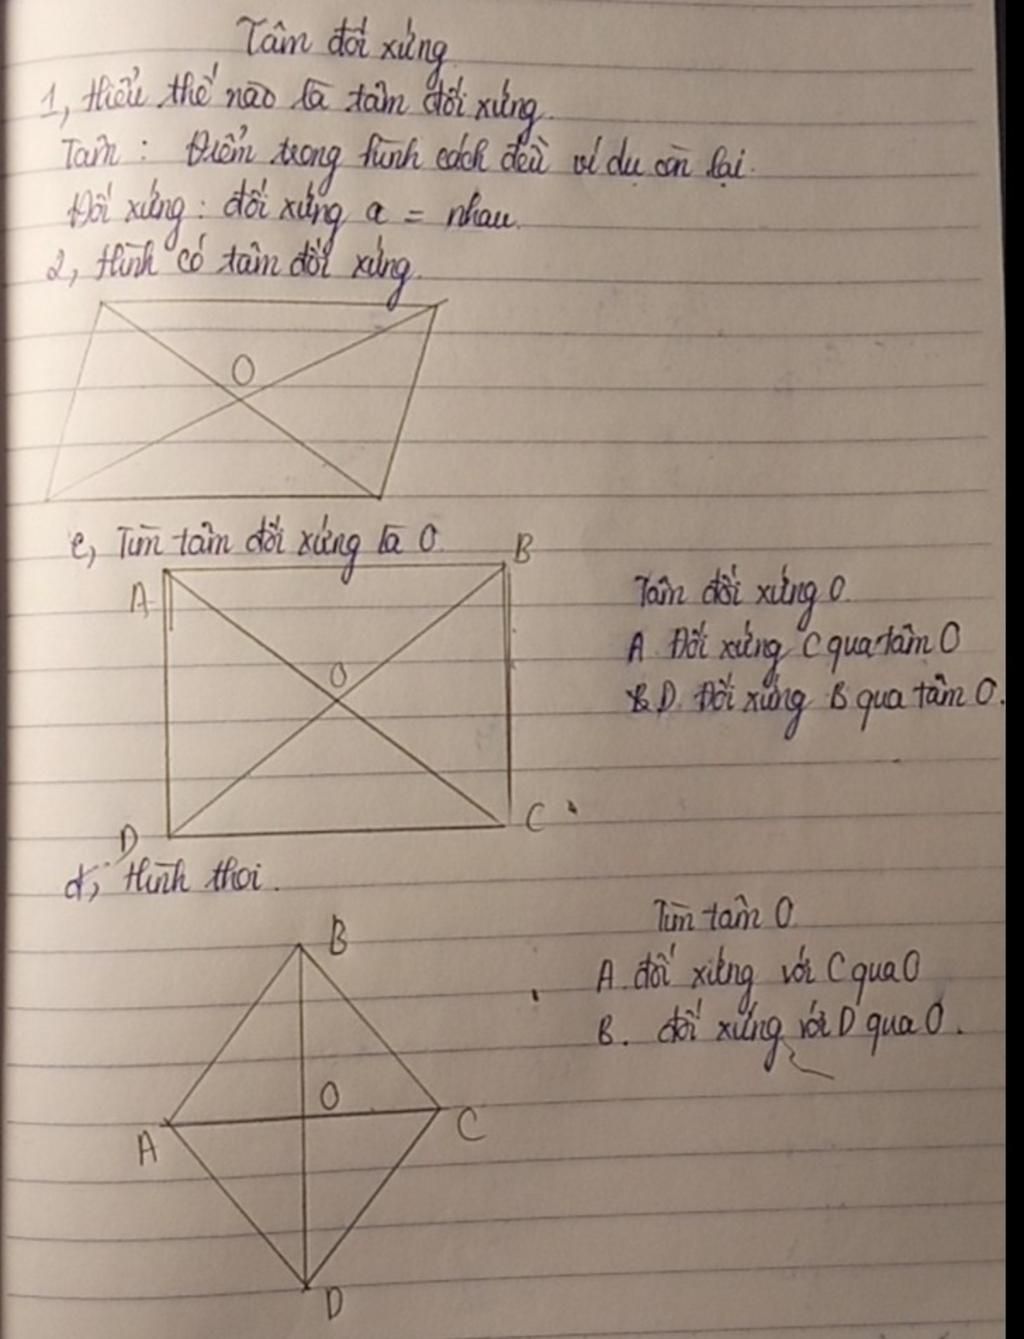 Tâm đối xứng
1, Hiểu thế nào là tâm đối xứng.
Tâm : Điểm trong hình cách đều ví dụ còn lại.
Đối xứng : đối xứng a = nhau.
2, Hình có tâm đối xứng.
O
c, Tìm tâm đối xứng là O.
A
B
O
D
C
Tâm đối xứng O.
A Đối xứng C qua tâm O
D. Đối xứng B qua tâm O.
d, Hình thoi.
B
O
A
C
D
Tìm tâm O
A. đối xứng với C qua O
B. đối xứng với D qua O.